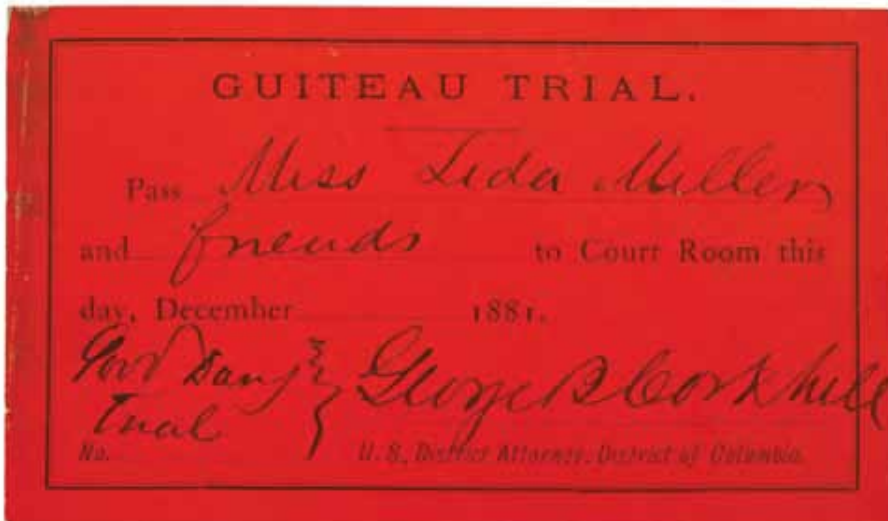 GUITEAU TRIAL.
Pass Miss Lida Miller
and friends to Court Room this
day, December 1881.
Good During
Trial
George B Corkhill
No.
U. S. District Attorney, District of Columbia.